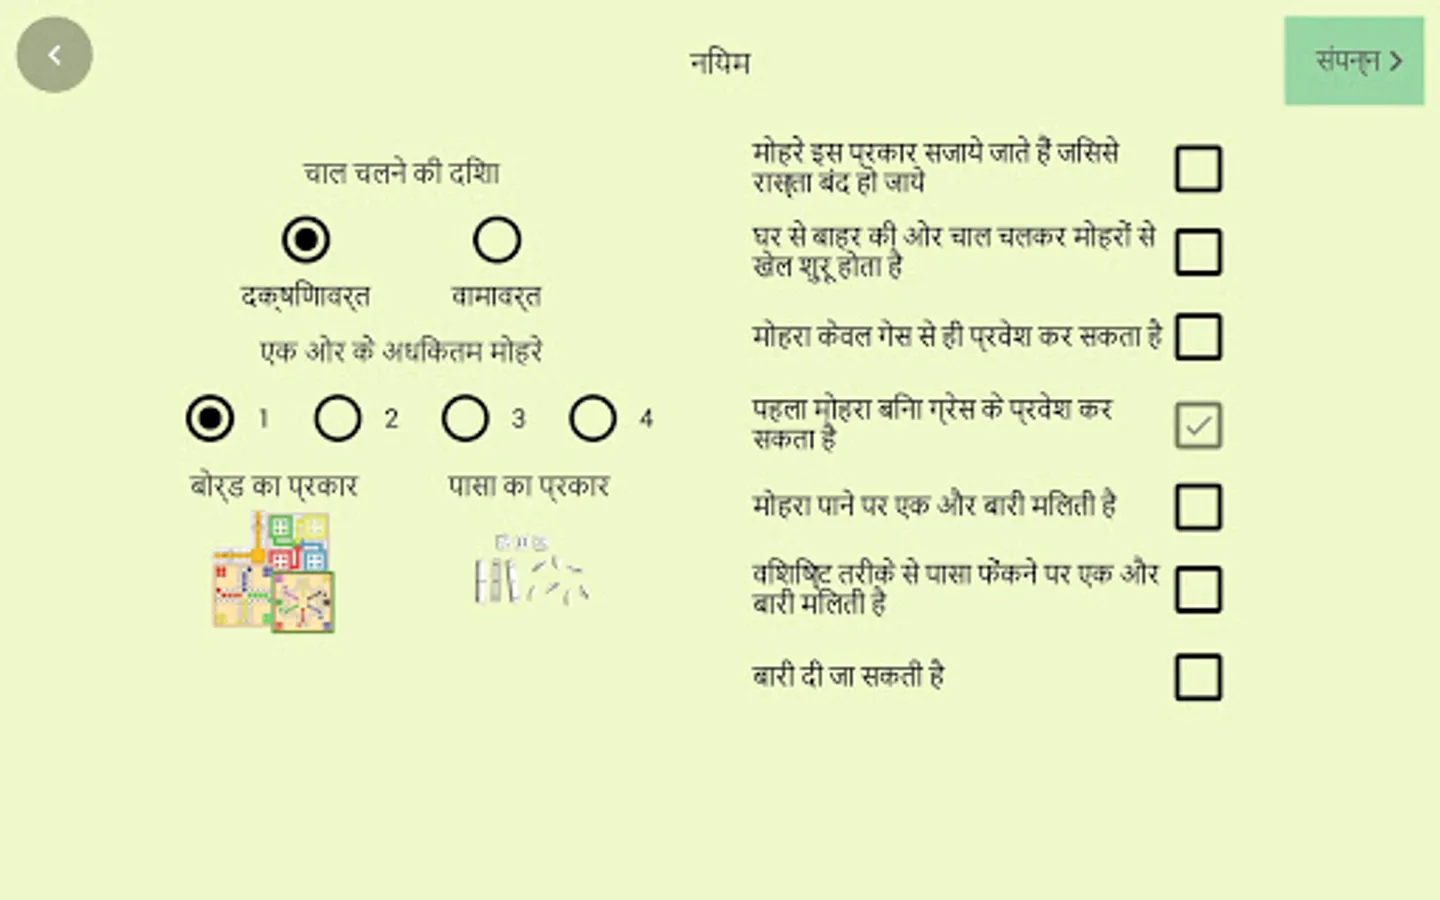 नियम
संपन्न
चाल चलने की दिशा
दक्षिणावर्त
वामावर्त
एक ओर के अधिकतम मोहरे
1
2
3
4
बोर्ड का प्रकार
पासा का प्रकार
मोहरे इस प्रकार सजाये जाते हैं जिससे
रास्ता बंद हो जाये
घर से बाहर की ओर चाल चलकर मोहरों से
खेल शुरू होता है
मोहरा केवल गेस से ही प्रवेश कर सकता है
पहला मोहरा बिना ग्रेस के प्रवेश कर
सकता है
मोहरा पाने पर एक और बारी मिलती है
विशिष्ट तरीके से पासा फेंकने पर एक और
बारी मिलती है
बारी दी जा सकती है